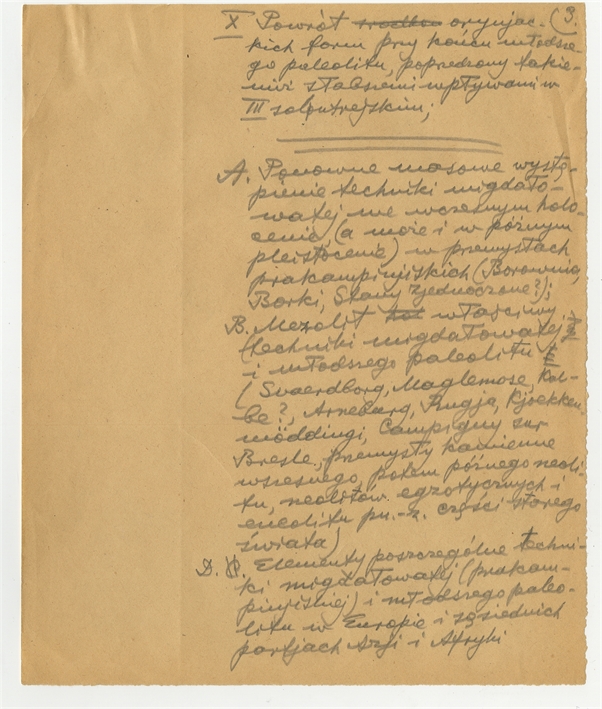 X Powrót środka orynjac- (3.
kich form przy końcu młodsze-
go paleolitu, poprzedzony takie-
miż słabszemi wpływami w
III solutrejskim;
A. Ponowne masowe wystą-
pienie techniki migdało-
watej we wczesnym holo-
cenie (a może i w późnym
pleistocenie) w przemysłach
prakampinijskich (Borownia,
Borki, Stany Zjednoczone?);
B. Mezolit właściwy
(techniki migdałowatej
i młodszego paleolitu
(Svaerdborg, Maglemose, Kol-
be?, Arneburg, Rugja, Kjoekken-
möddingi, Campigny sur
Bresle, przemysły kamienne
wczesnego, potem późnego neoli-
tu, neolitów egzotycznych i
eneolitu pn.-z. części starego
świata)
D. Elementy poszczególne techni-
ki migdałowatej (prakam-
pinijskiej) i młodszego paleo-
litu w Europie i sąsiednich
partjach Azji i Afryki